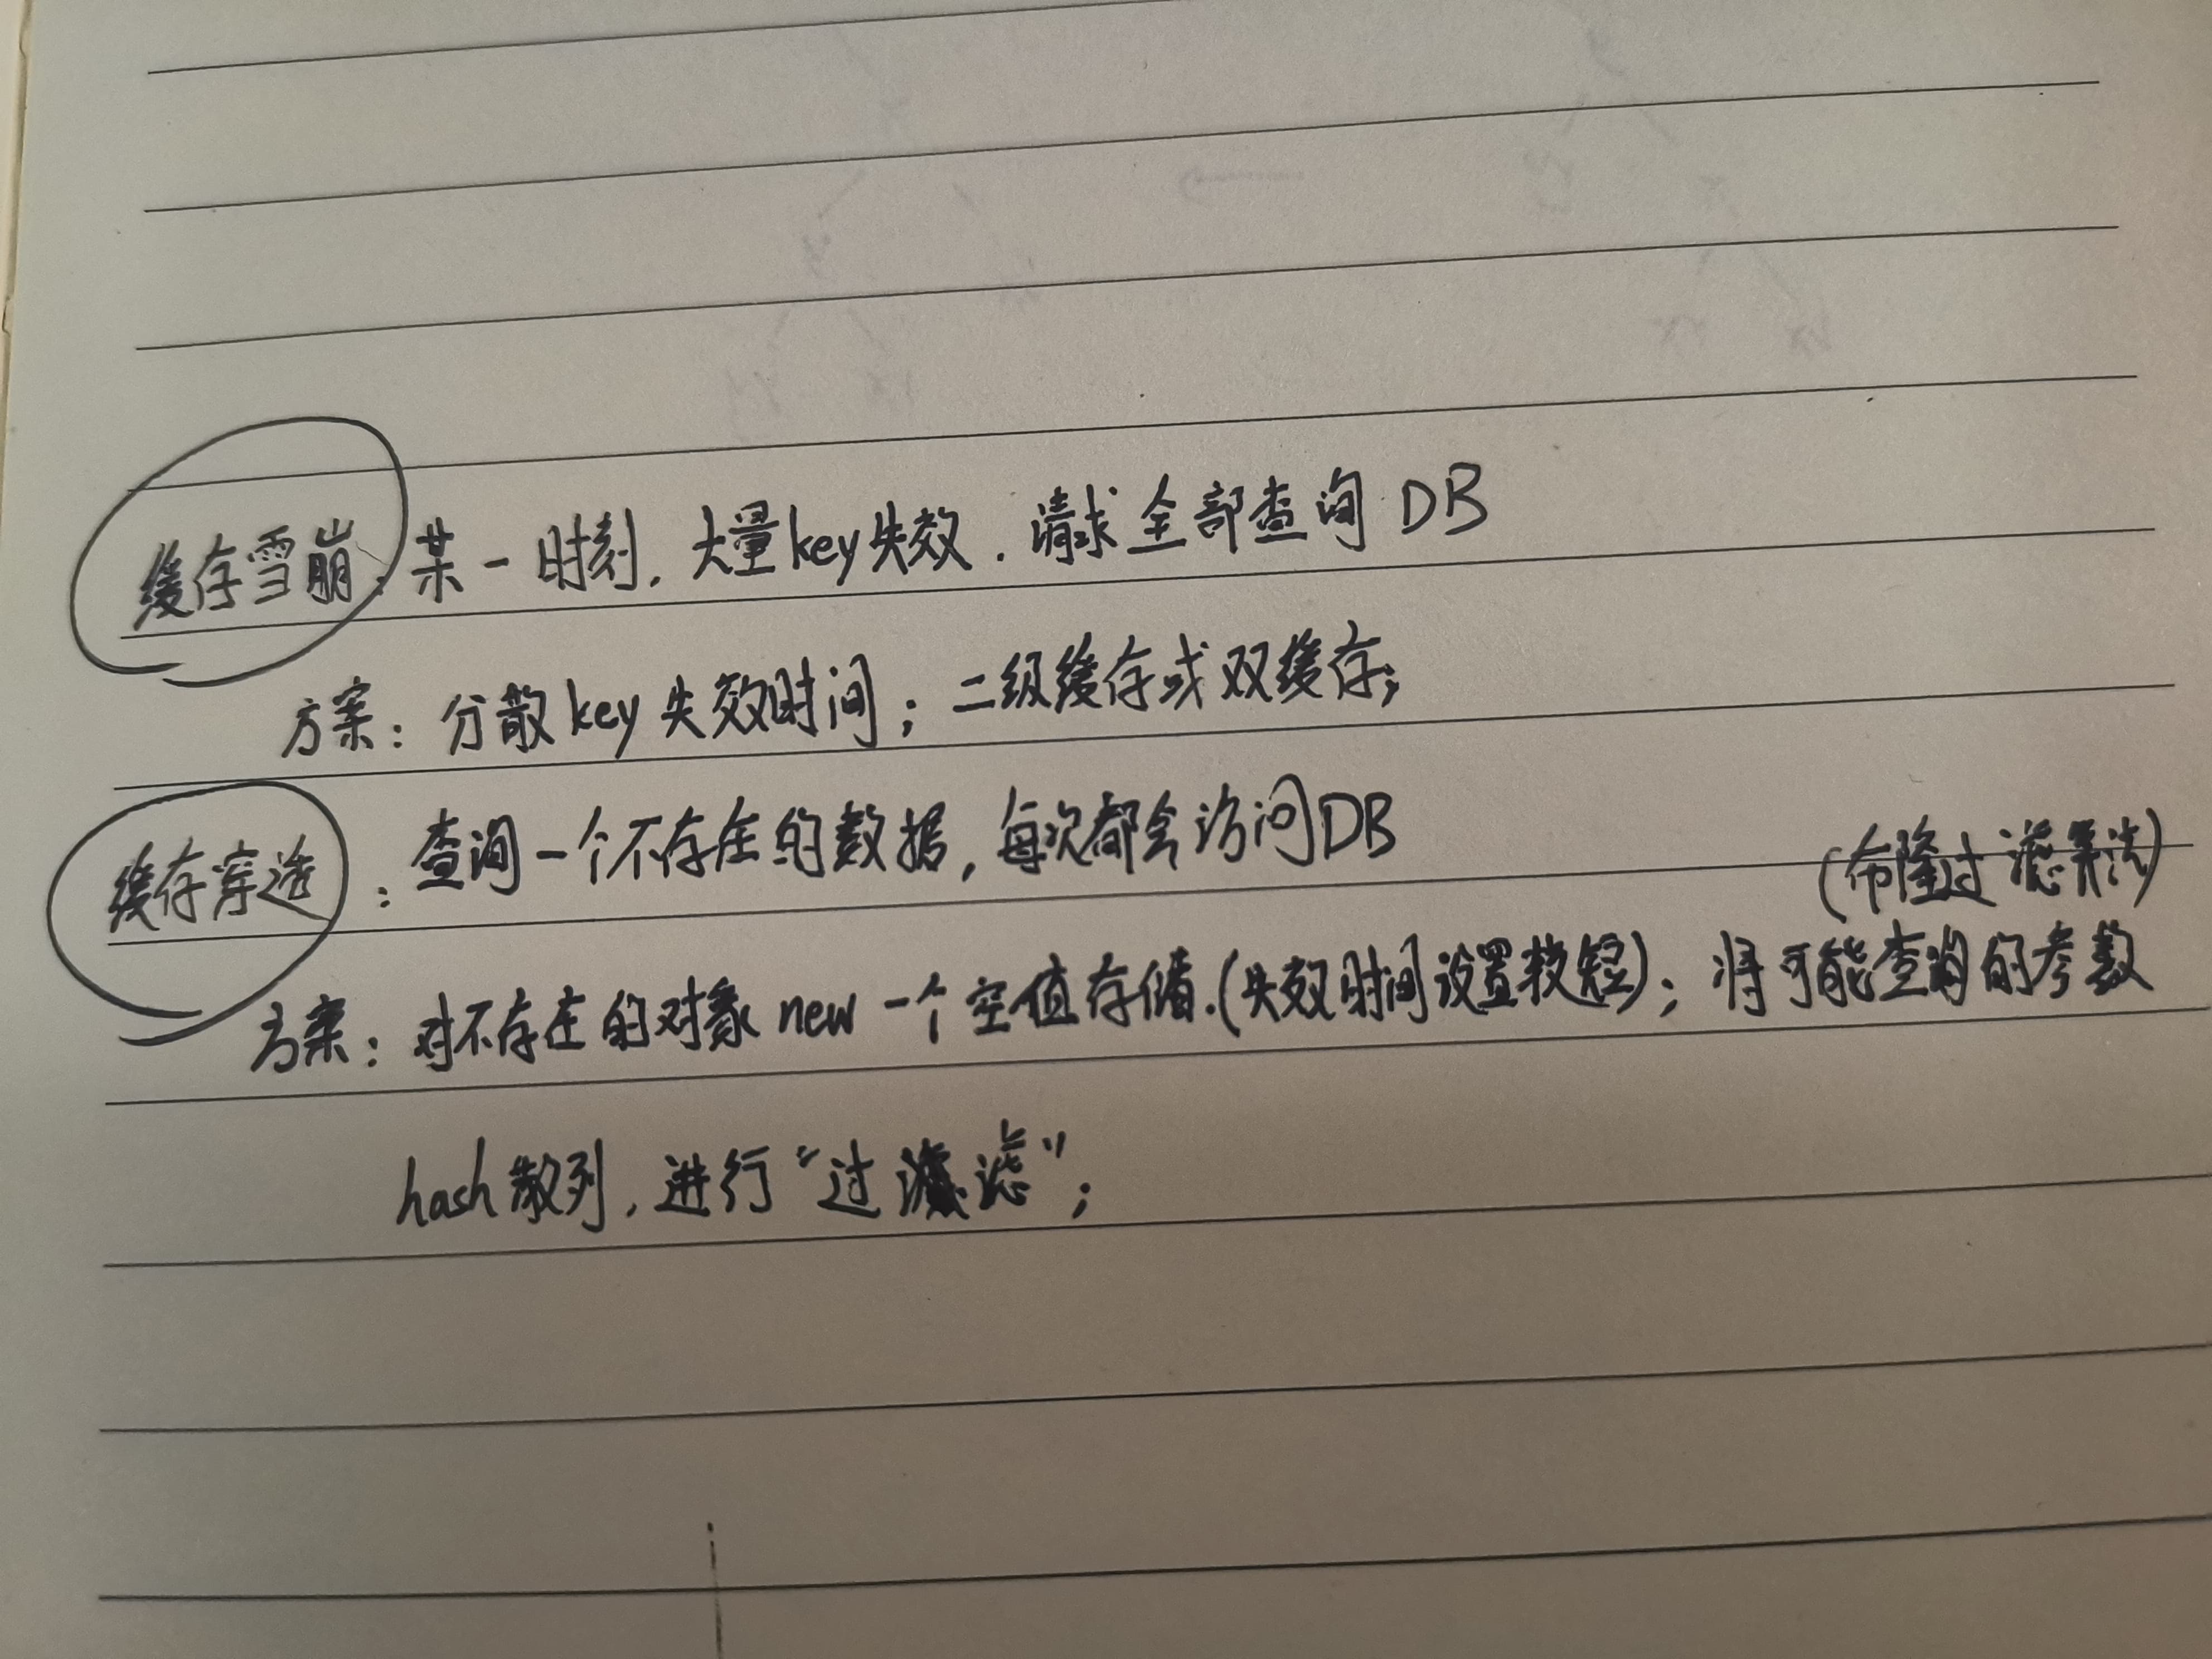 缓存雪崩：某一时刻，大量key失效．请求全部查询DB
方案：分散key失效时间；二级缓存或双缓存；
缓存穿透：查询一个不存在的数据，每次都会访问DB
(布隆过滤算法)
方案：对不存在的对象new一个空值存储.(失效时间设置较短)；将可能查询的参数
hash散列，进行“过滤”；